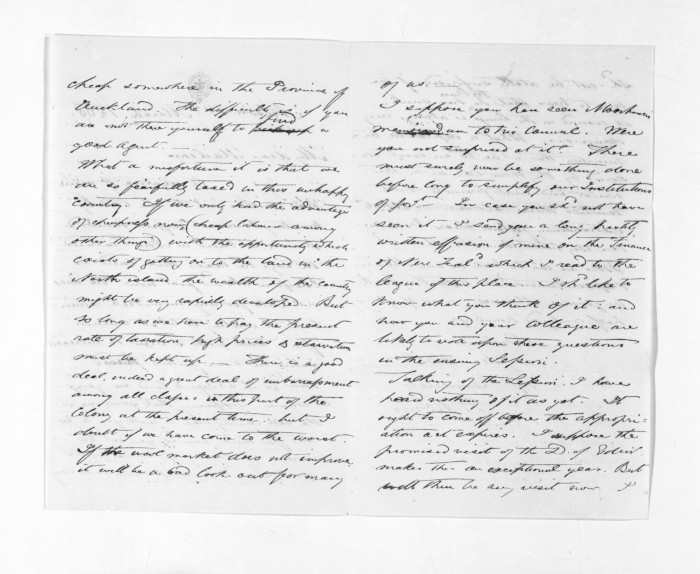 cheap somewhere in the Province of
Auckland. The difficulty is if you
are not there yourself to find a
good agent —
What a misfortune it is that we
are so fearfully taxed in this unhappy
Country. If we only had the advantage
of cheapness now (cheap labour among
other things) with the opportunity which
exists of getting on to the land in the
North island the wealth of the country
might be very rapidly developed. But
so long as we have to pay the present
rate of taxation, high prices & starvation
must be kept up — There is a good
deal, indeed a great deal of embarrassment
among all classes in this part of the
Colony at the present time but I
doubt if we have come to the worst.
If the wool market does not improve
it will be a bad look out for many
of us.
I suppose you have seen Moorhouse's
memorandum to his Council. Were
you not surprised at it? There
must surely now be something done
before long to simplify our Institutions
of Govt — In case you shd not have
seen it I send you a long hastily
written effusion of mine on the Finance
of New Zeald which I read to the
league of this place. I shd like to
know what you think of it. and
how you and your Colleague are
likely to vote upon these questions
in the ensuing Session.
Talking of the Session. I have
heard nothing of it as yet. It
ought to come off before the appropri-
ation act expires. I suppose the
promised visit of the D. of Edin
makes this an exceptional year. But
will there be any visit now